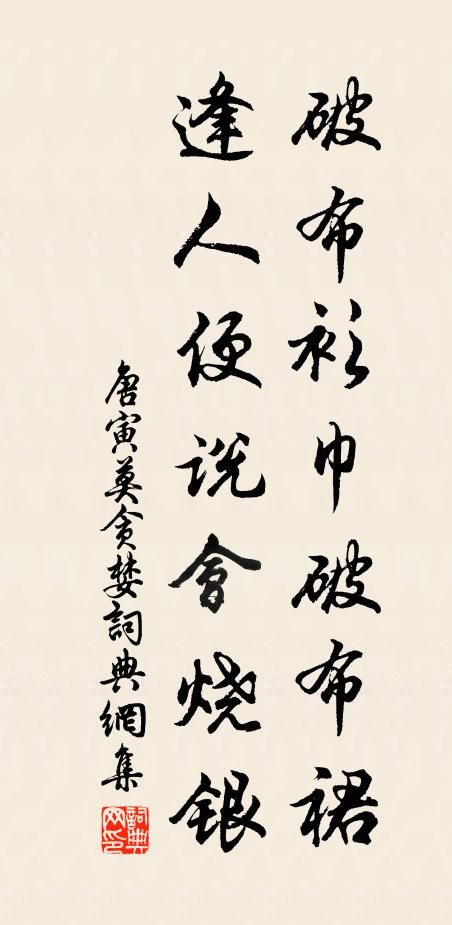 破布衫巾破布裙
逢人便说會烧銀
唐寅莫贪婪詞典網集
詞典网印